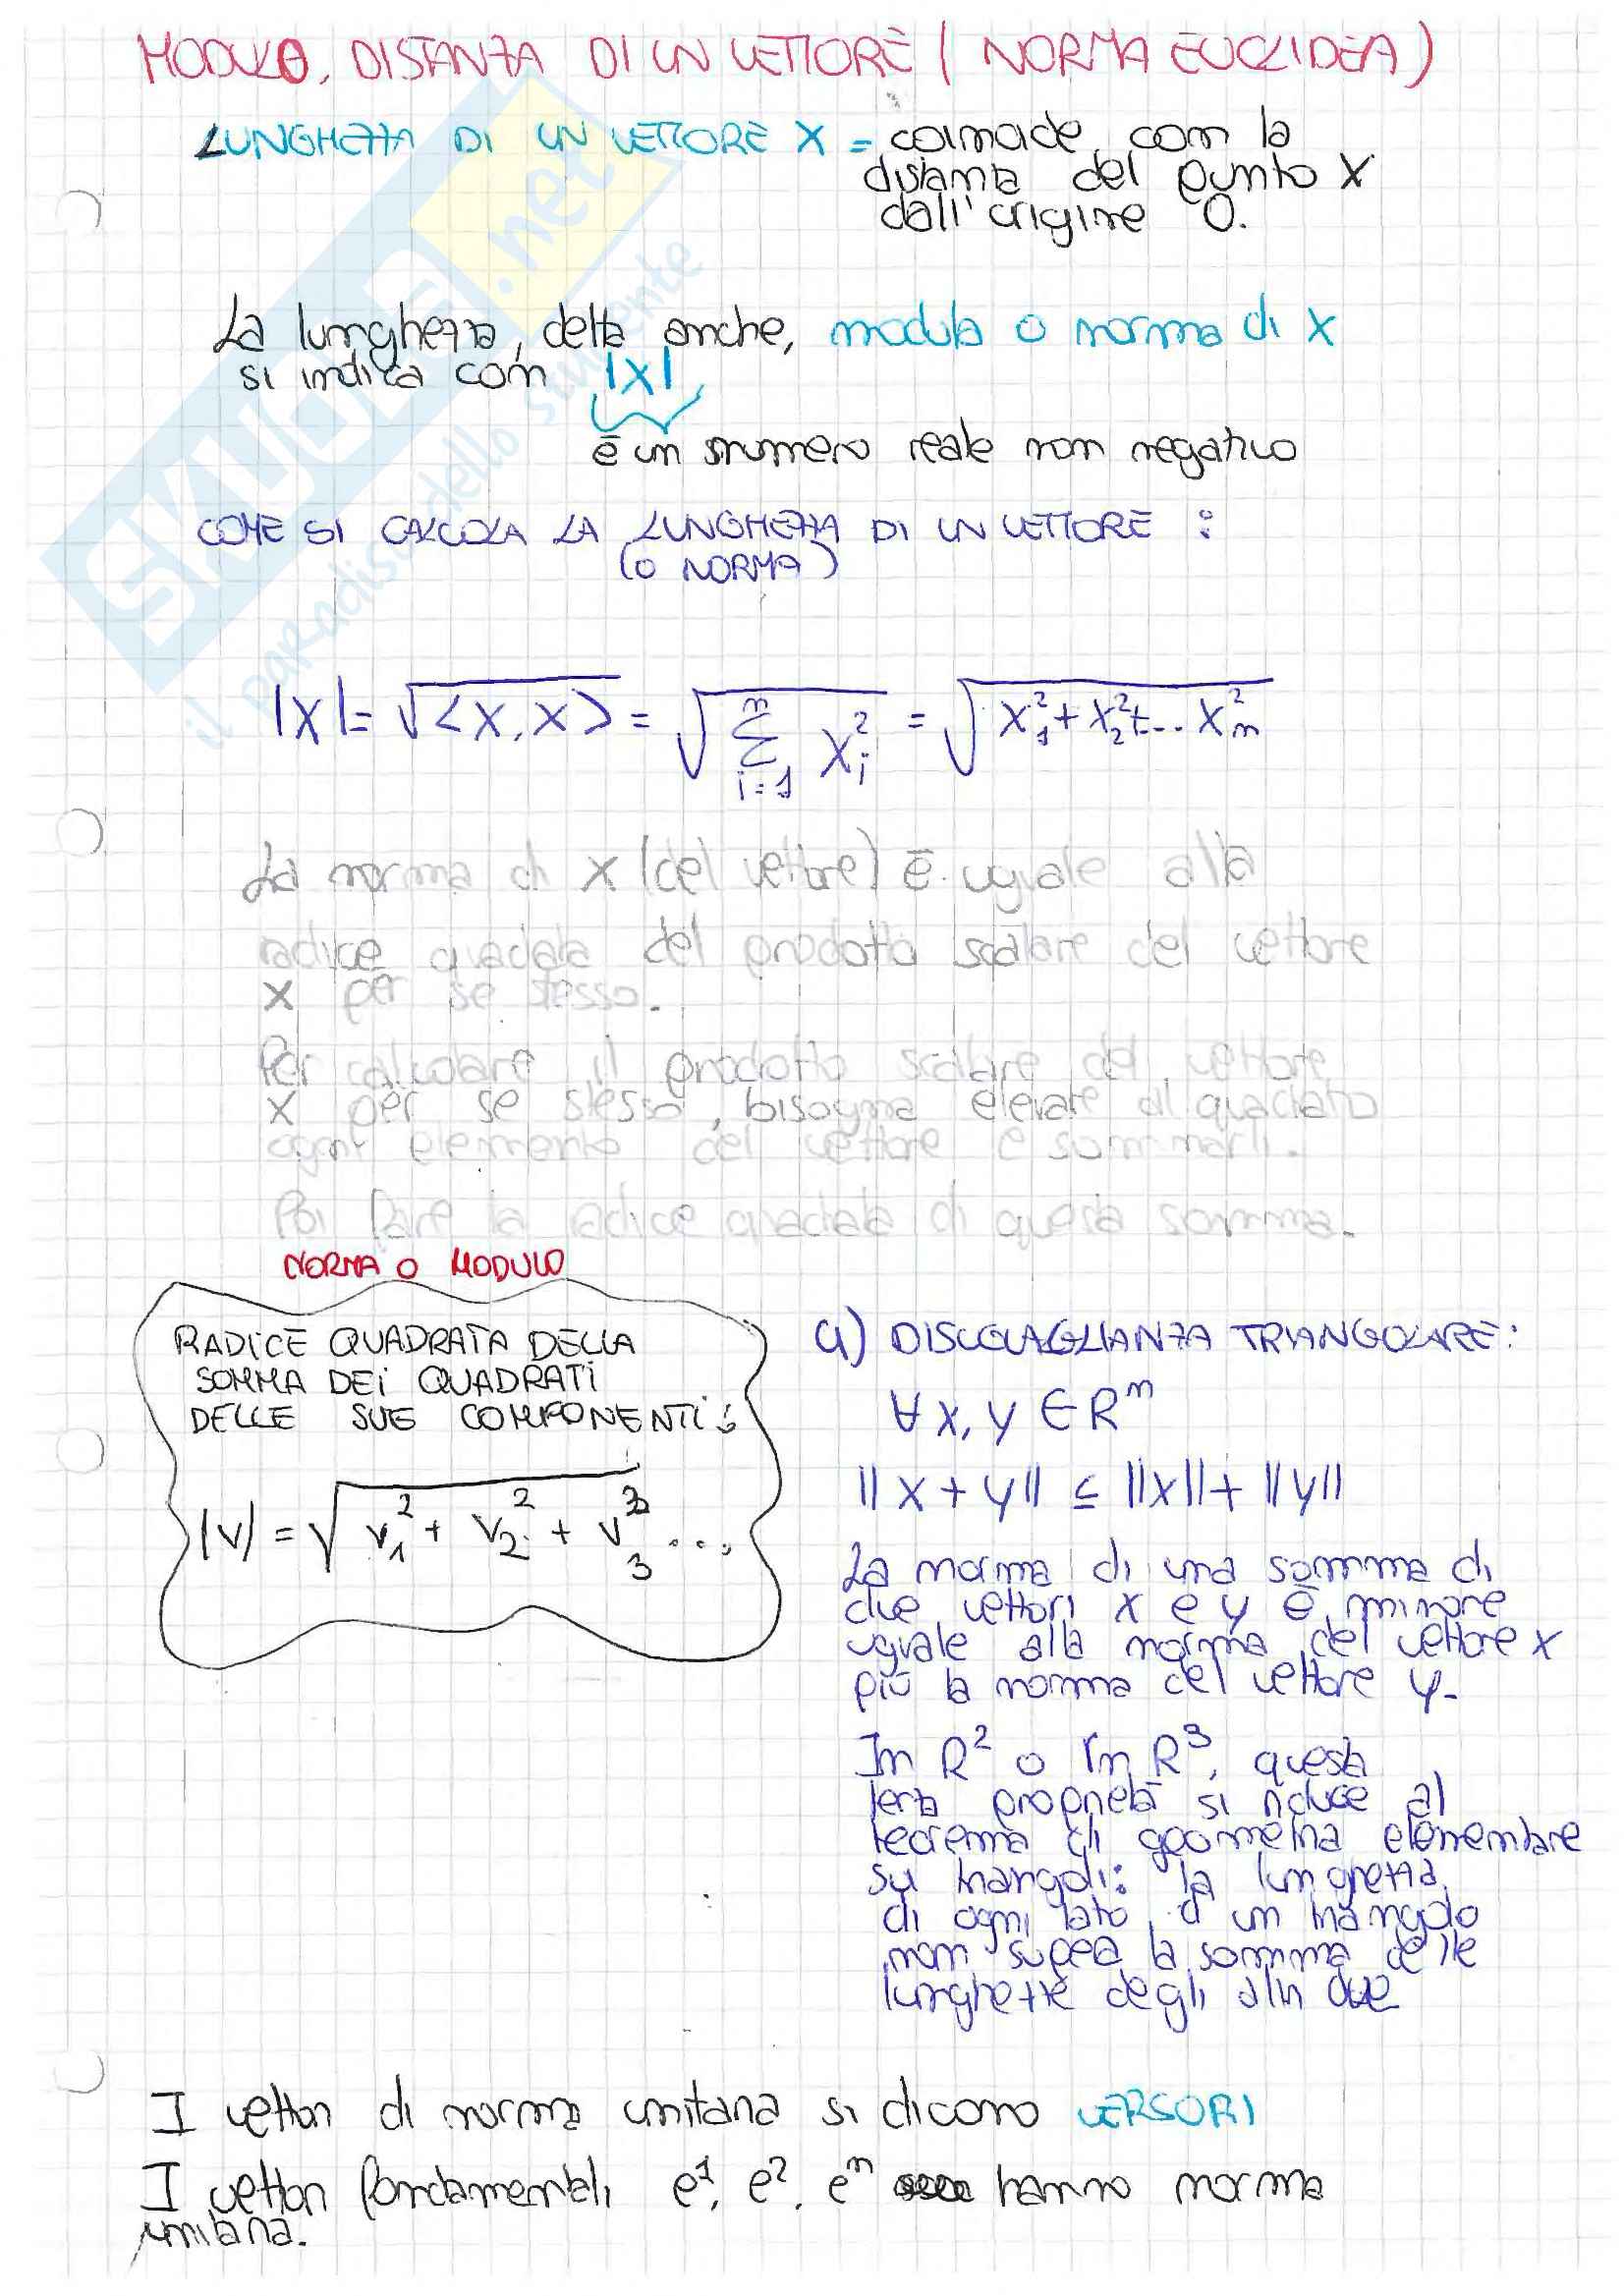 MODULO, DISTANZA DI UN VETTORE ( NORMA EUCLIDEA )
LUNGHEZZA DI UN VETTORE X = coincide con la
distanza del punto X
dall'origine O.
La lunghezza, detta anche, modulo o norma di X
si indica con |X|
è un numero reale non negativo
COME SI CALCOLA LA LUNGHEZZA DI UN VETTORE :
(O NORMA)
|X| = √<X, X> = √∑ⁿᵢ₌₁ Xᵢ² = √X₁² + X₂² + ... Xₙ²
La norma di X (del vettore) è uguale alla
radice quadrata del prodotto scalare del vettore
X per se stesso.
Per calcolare il prodotto scalare del vettore
X per se stesso, bisogna elevare al quadrato
ogni elemento del vettore e sommarli.
Poi fare la radice quadrata di questa somma.
NORMA O MODULO
RADICE QUADRATA DELLA
SOMMA DEI QUADRATI
DELLE SUE COMPONENTI:
|V| = √V₁² + V₂² + V₃² ...
a) DISUGUAGLIANZA TRIANGOLARE:
∀ X, Y ∈ Rⁿ
||X + Y|| ≤ ||X|| + ||Y||
La norma di una somma di
due vettori X e Y è minore
uguale alla norma del vettore X
più la norma del vettore Y.
In R² o in R³, questa
terza proprietà si riduce al
teorema di geometria elementare
sui triangoli: la lunghezza
di ogni lato d un triangolo
non supera la somma delle
lunghezze degli altri due
I vettori di norma unitaria si dicono VERSORI
I vettori fondamentali e¹, e², eⁿ hanno norma
unitaria.
SKUOLA.net
il paradiso dello studente